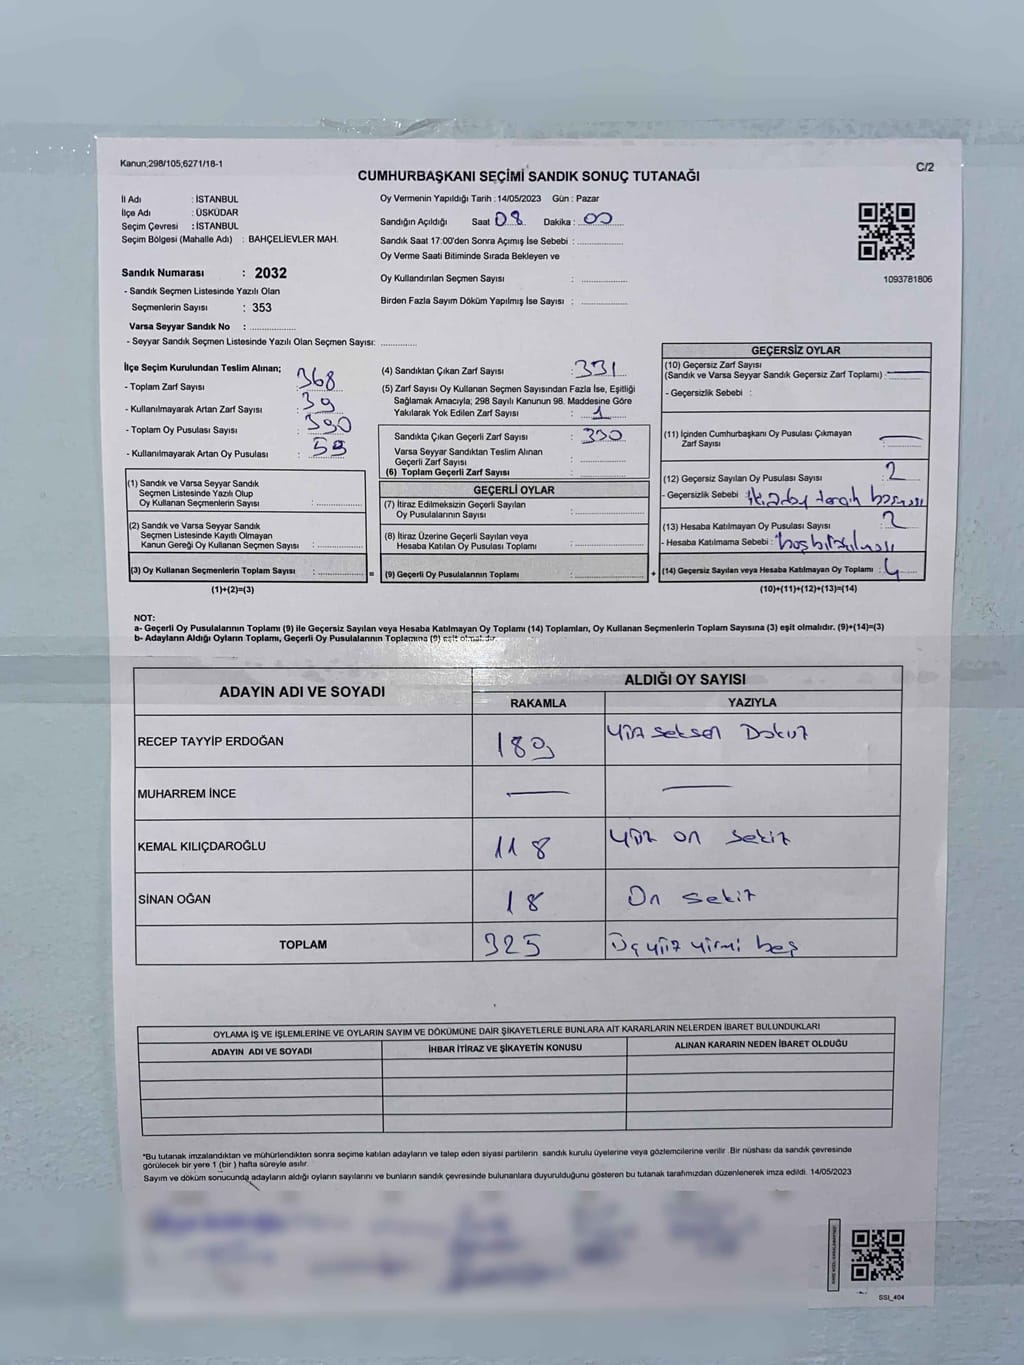 Kanun;298/105,6271/18-1
C/2
CUMHURBAŞKANI SEÇİMİ SANDIK SONUÇ TUTANAĞI
İl Adı : İSTANBUL
İlçe Adı : ÜSKÜDAR
Seçim Çevresi : İSTANBUL
Seçim Bölgesi (Mahalle Adı) : BAHÇELİEVLER MAH.
Sandık Numarası : 2032
- Sandık Seçmen Listesinde Yazılı Olan
Seçmenlerin Sayısı : 353
Varsa Seyyar Sandık No : ..............
- Seyyar Sandık Seçmen Listesinde Yazılı Olan Seçmen Sayısı: ............
Oy Vermenin Yapıldığı Tarih :14/05/2023 Gün : Pazar
Sandığın Açıldığı Saat 08 Dakika : 00
Sandık Saat 17:00'den Sonra Açımış İse Sebebi : ..............
Oy Verme Saati Bitiminde Sırada Bekleyen ve
Oy Kullandırılan Seçmen Sayısı : ..............
Birden Fazla Sayım Döküm Yapılmış İse Sayısı : ..............
1093781806
İlçe Seçim Kurulundan Teslim Alınan;
- Toplam Zarf Sayısı : 368
- Kullanılmayarak Artan Zarf Sayısı : 39
- Toplam Oy Pusulası Sayısı : 390
- Kullanılmayarak Artan Oy Pusulası : 59
(1) Sandık ve Varsa Seyyar Sandık
Seçmen Listesinde Yazılı Olup
Oy Kullanan Seçmenlerin Sayısı : ..............
(2) Sandık ve Varsa Seyyar Sandık
Seçmen Listesinde Kayıtlı Olmayan
Kanun Gereği Oy Kullanan Seçmen Sayısı : ..............
(3) Oy Kullanan Seçmenlerin Toplam Sayısı : .............. =
(1)+(2)=(3)
(4) Sandıktan Çıkan Zarf Sayısı : 331
(5) Zarf Sayısı Oy Kullanan Seçmen Sayısından Fazla İse, Eşitliği
Sağlamak Amacıyla; 298 Sayılı Kanunun 98. Maddesine Göre
Yakılarak Yok Edilen Zarf Sayısı : 1
Sandıkta Çıkan Geçerli Zarf Sayısı : 330
Varsa Seyyar Sandıktan Teslim Alınan
Geçerli Zarf Sayısı : ..............
(6) Toplam Geçerli Zarf Sayısı : ..............
GEÇERLİ OYLAR
(7) İtiraz Edilmeksizin Geçerli Sayılan
Oy Pusulalarının Sayısı : ..............
(8) İtiraz Üzerine Geçerli Sayılan veya
Hesaba Katılan Oy Pusulası Toplamı : ..............
(9) Geçerli Oy Pusulalarının Toplamı : .............. +
GEÇERSİZ OYLAR
(10) Geçersiz Zarf Sayısı
(Sandık ve Varsa Seyyar Sandık Geçersiz Zarf Toplamı) : —
- Geçersizlik Sebebi :
(11) İçinden Cumhurbaşkanı Oy Pusulası Çıkmayan
Zarf Sayısı : —
(12) Geçersiz Sayılan Oy Pusulası Sayısı : 2
- Geçersizlik Sebebi : iki aday tercih
(13) Hesaba Katılmayan Oy Pusulası Sayısı : 2
- Hesaba Katılmama Sebebi : boş
(14) Geçersiz Sayılan veya Hesaba Katılmayan Oy Toplamı : 4
(10)+(11)+(12)+(13)=(14)
NOT:
a- Geçerli Oy Pusulalarının Toplamı (9) ile Geçersiz Sayılan veya Hesaba Katılmayan Oy Toplamı (14) Toplamları, Oy Kullanan Seçmenlerin Toplam Sayısına (3) eşit olmalıdır. (9)+(14)=(3)
b- Adayların Aldığı Oyların Toplamı, Geçerli Oy Pusulalarının Toplamına (9) eşit olmalıdır.
ADAYIN ADI VE SOYADI
ALDIĞI OY SAYISI
RAKAMLA YAZIYLA
RECEP TAYYİP ERDOĞAN 189 Yüz seksen Dokuz
MUHARREM İNCE — —
KEMAL KILIÇDAROĞLU 118 Yüz on sekiz
SİNAN OĞAN 18 On sekiz
TOPLAM 325 Üçyüz yirmi beş
OYLAMA İŞ VE İŞLEMLERİNE VE OYLARIN SAYIM VE DÖKÜMÜNE DAİR ŞİKAYETLERLE BUNLARA AİT KARARLARIN NELERDEN İBARET BULUNDUKLARI
ADAYIN ADI VE SOYADI İHBAR İTİRAZ VE ŞİKAYETİN KONUSU ALINAN KARARIN NEDEN İBARET OLDUĞU
*Bu tutanak imzalandıktan ve mühürlendikten sonra seçime katılan adayların ve talep eden siyasi partilerin sandık kurulu üyelerine veya gözlemcilerine verilir. Bir nüshası da sandık çevresinde
görülecek bir yere 1 (bir ) hafta süreyle asılır.
Sayım ve döküm sonucunda adayların aldığı oyların sayılarını ve bunların sandık çevresinde bulunanlara duyurulduğunu gösteren bu tutanak tarafımızdan düzenlenerek imza edildi. 14/05/2023
SSI_404